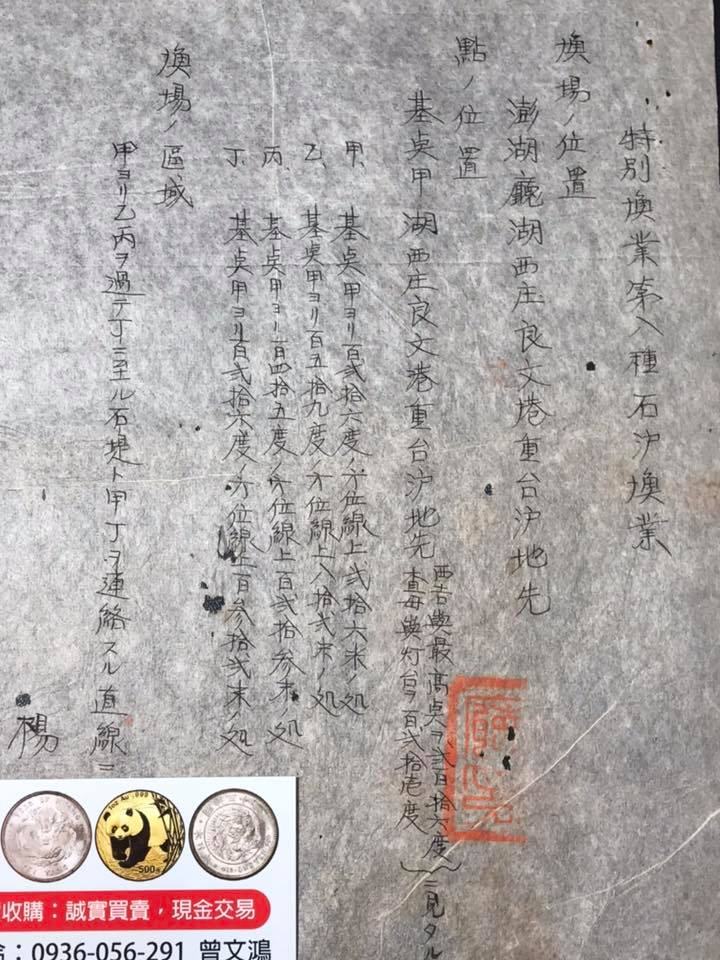 特別漁業第八種石沪漁業
漁場ノ位置
澎湖廳湖西庄良文港重台沪地先
點ノ位置
基点甲湖西庄良文港重台沪地先
西吉嶼最高点ヲ弐百拾六度
査母嶼灯台ヲ百弐拾壱度
ニ見タル
甲、基点甲ヨリ百弐拾六度ノ方位線上弐拾六米ノ処
乙、基点甲ヨリ百五拾九度ノ方位線上八拾弐米ノ処
丙、基点甲ヨリ百四拾五度ノ方位線上百弐拾参米ノ処
丁、基点甲ヨリ百弐拾六度ノ方位線上百参拾弐米ノ処
漁場ノ區域
甲ヨリ乙丙ヲ過テ丁ニ至ル石堤ト甲丁ヲ連絡スル直線ニ
楊
1oz Au .999
500元
收購：誠實買賣，現金交易
：0936-056-291 曾文鴻